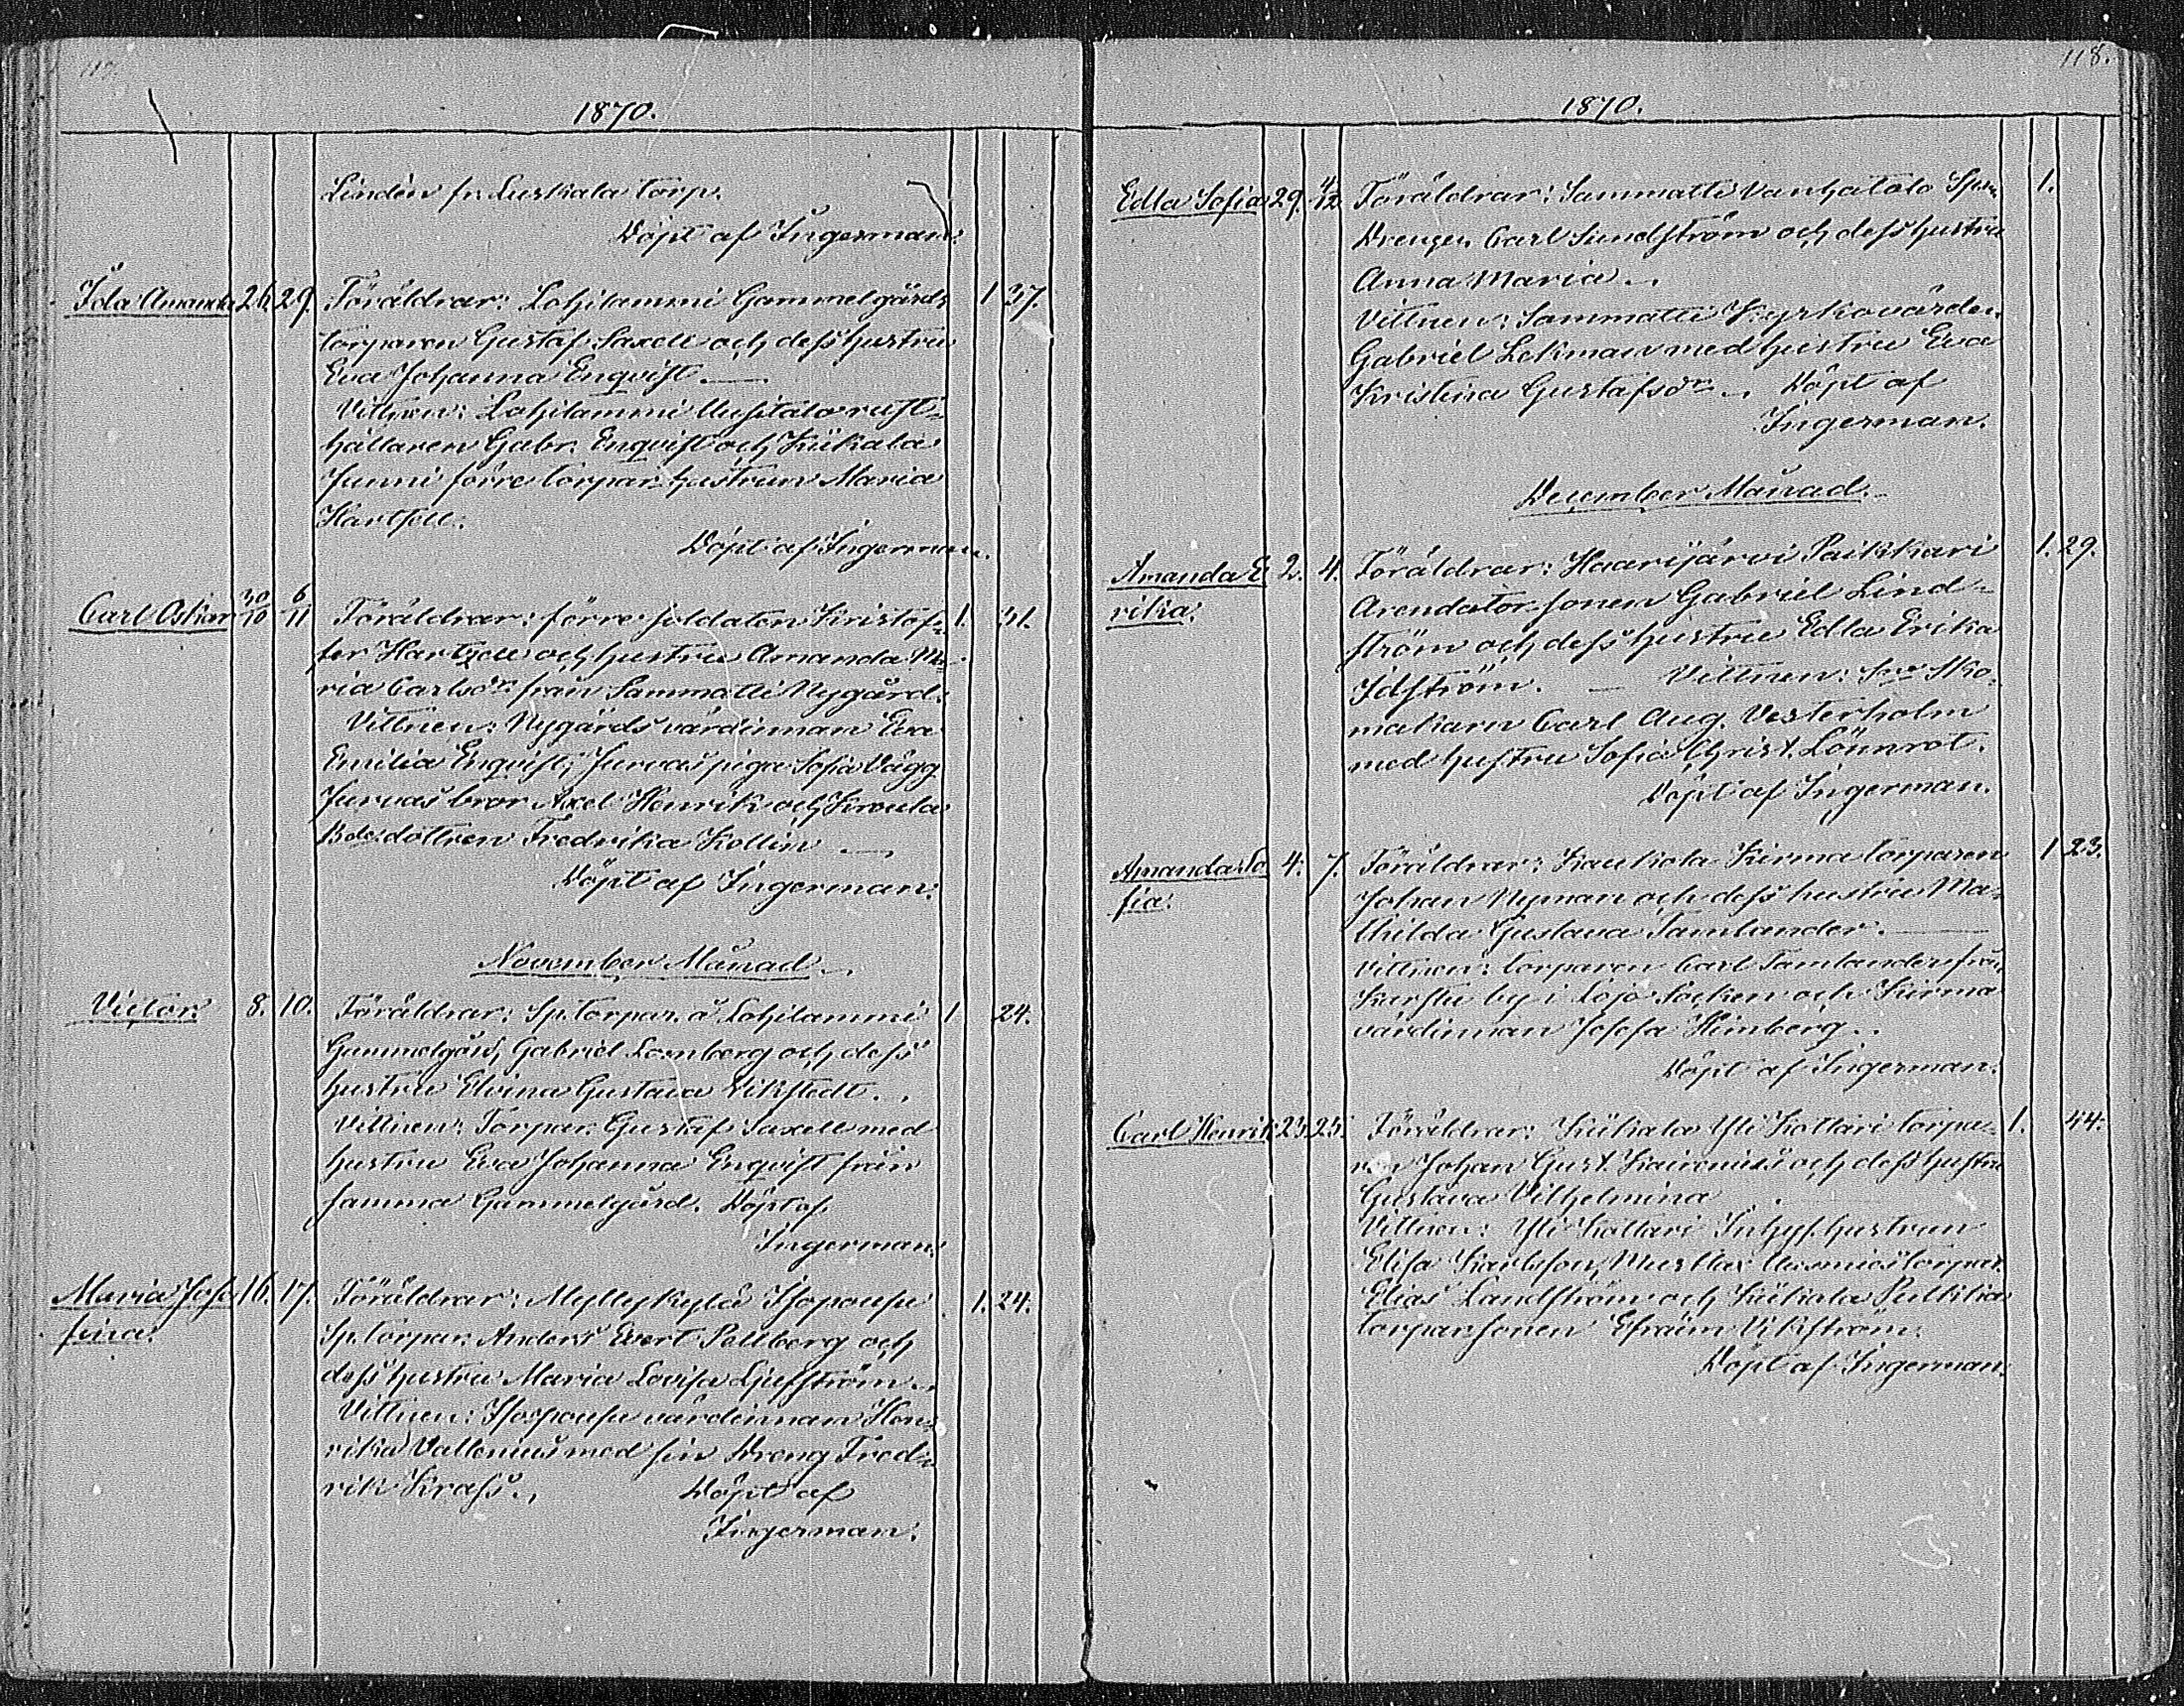 117.
1870.
Lindén fr. Luskala torp.
Döpt af Ingerman.
Ida Amanda 26. 29. Föräldrar: Lohilammi Gammelgårds 1 37.
torparen Gustaf Saxell och dess hustru
Eva Johanna Enqvist. —
Vittnen: Lohilammi Uusitalo rust-
hållaren Gabr. Enqvist och Kiikala
Junni förre torpar hustrun Maria
Hartsell.
Döpt af Ingerman.
Carl Oskar 30/10 6/11 Föräldrar: förre soldaten Kristof- 1. 31.
fer Hartzell och hustru Amanda Ma-
ria Carlsdr. från Sammatti Nygård.
Vittnen: Nygårds värdinnan Eva
Emilia Enqvist, Junnas piga Sofia Vägg
Junnas bror Axel Henrik och
dottren Fredrika Kollin —
Döpt af Ingerman.
November Månad.
Victor. 8. 10. Föräldrar: Sp. torpar. å Lohilammi 1 24.
Gammelgård, Gabriel Lomberg och dess
hustru Elvina Gustava Vikstedt.
Vittnen: Torpar. Gustaf Saxell med
hustru Eva Johanna Enqvist från
samma Gammelgård. Döpt af
Ingerman.
Maria Jose- 16. 17. Föräldrar: Myllykylä Isopousu 1. 24.
fina. Sp. torpar. Anders Evert Pellberg och
dess hustru Maria Lovisa Ljefström.
Vittnen: Isopousu värdinnan Hen-
rika Vallenius med sin Dreng Fred-
rik Krass. Döpt af
Ingerman.
118.
1870.
Edla Sofia 29. 4/12 Föräldrar: Sammatti Vanhatalo Sp. 1.
Drengen Carl Sundström och dess hustru
Anna Maria.
Vittnen: Sammatti Kyrkovärden
Gabriel Lekman med hustru Eva
Kristina Gustafsdr. Döpt af
Ingerman.
December Månad.
Amanda E- 2. 4. Föräldrar: Haarijärvi Paikkari 1. 29.
rika. Arendator sonen Gabriel Lind-
ström och dess hustru Edla Erika
Idström. — Vittnen: Sko-
makarn Carl Aug. Vesterholm
med hustru Sofia Christ. Lönnrot.
Döpt af Ingerman.
Amanda So- 4. 7. Föräldrar: Kaukola Kirma torparen 1 23.
fia. Johan Nyman och dess hustru Ma-
thilda Gustava Tamlander. —
Vittnen: torparen Carl Tamlander från
Karstu by i Lojo Socken och Kirma
värdinnan Josefa Himberg.
Döpt af Ingerman.
Carl Henrik 23. 25. Föräldrar: Kiikala Yli Kottari torpa- 1. 44.
ren Johan Gust. Kairenius och dess hustru
Gustava Vilhelmina
Vittnen: Yli Kottari Inhys. hustrun
Elisa Karlsson, torpar.
Elias Landström och Kiikala Pulkkila
torparsonen Efraim Vikström.
Döpt af Ingerman.